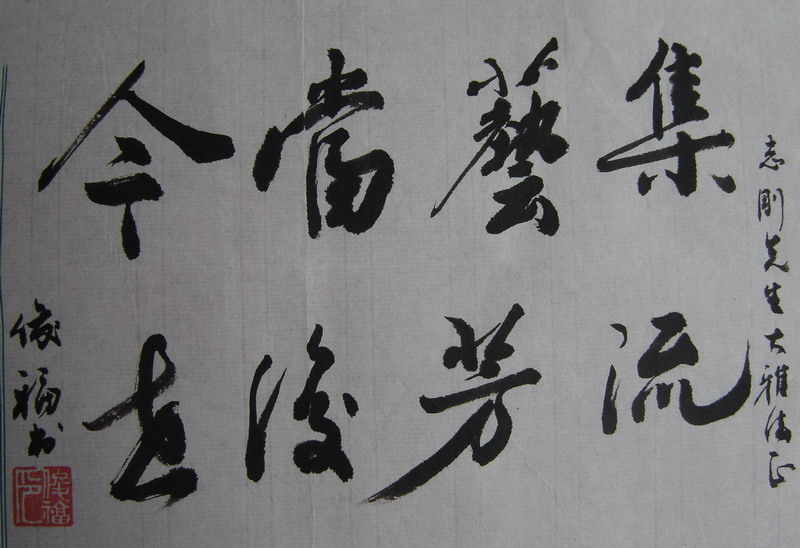 志剛先生大雅正
集藝當今
流芳後世
俊福书
俊福印